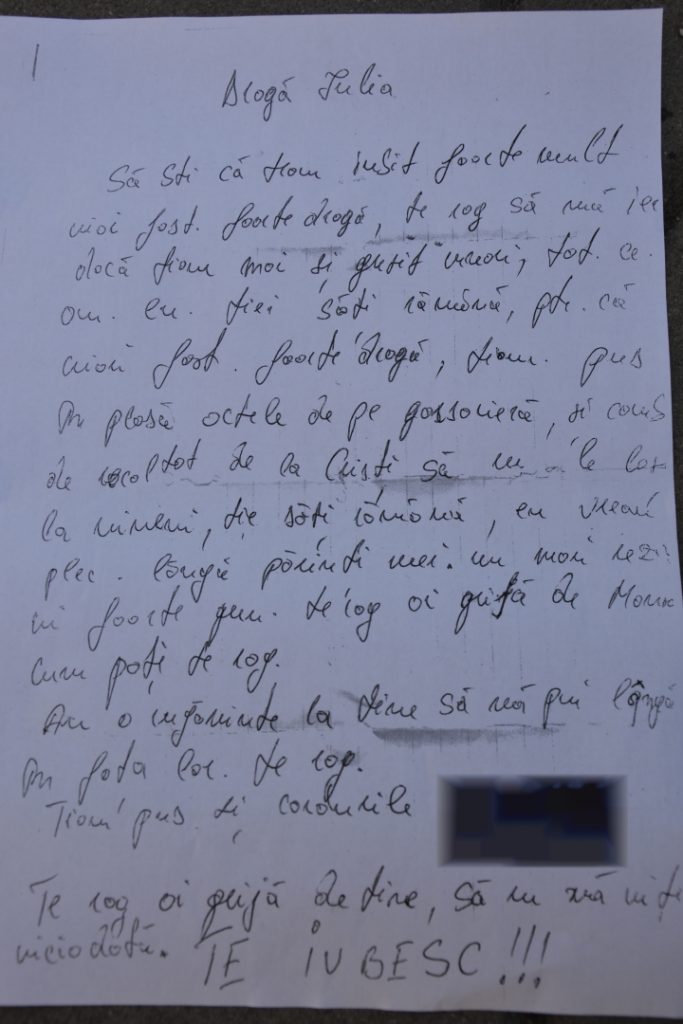 1
Dragă Iulia
Să sti că team iubit foarte mult
miai fost. foarte dragă, te rog să mă ier
dacă tiam mai și gresit uneori, tot. ce.
am. eu. tiei săti rămână, ptr. că
miai fost. foarte dragă, tiam. pus
în plasă actele de pe garsonieră, si
de la Cristi să nu le
la nimeni, tie săți rămână, eu vreau
plec. lângă părinti mei. nu mai
mi foarte greu. te rog ai grijă de
cum poți te rog.
Am o rugăminte la tine să mă pui lângă
în fata lor. te rog.
Tiam pus și cardurile
Te rog ai grijă de tine, să nu mă uiți
niciodată. TE IUBESC !!!